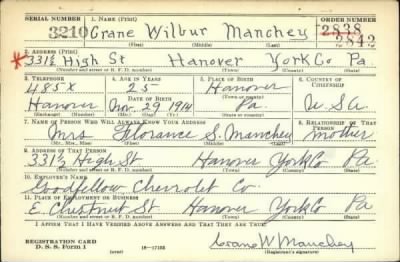 SERIAL NUMBER 1. NAME (Print) ORDER NUMBER
3210 Crane Wilbur Manchey 2838 2842
(First) (Middle) (Last)
2. ADDRESS (Print)
*331½ High St Hanover York Co Pa.
(Number and street or R. F. D. number) (Town) (County) (State)
3. TELEPHONE 4. AGE IN YEARS 5. PLACE OF BIRTH 6. COUNTRY OF CITIZENSHIP
485X 25 Hanover
DATE OF BIRTH (Town or county)
Hanover Nov. 29 1914 Pa. U.S.A
(Exchange) (Mo.) (Day) (Yr.) (State or country)
7. NAME OF PERSON WHO WILL ALWAYS KNOW YOUR ADDRESS 8. RELATIONSHIP OF THAT PERSON
Mrs Florance S. Manchey Mother
(Mr., Mrs., Miss) (First) (Middle) (Last)
9. ADDRESS OF THAT PERSON
331½ High St Hanover York Co Pa
(Number and street or R. F. D. number) (Town) (County) (State)
10. EMPLOYER'S NAME
Goodfellow Chevrolet Co.
11. PLACE OF EMPLOYMENT OR BUSINESS
E. Chestnut St Hanover York Co Pa
(Number and street or R. F. D. number) (Town) (County) (State)
I AFFIRM THAT I HAVE VERIFIED ABOVE ANSWERS AND THAT THEY ARE TRUE.
REGISTRATION CARD
D. S. S. Form 1 (over) 16—17105 Crane W Manchey
(Registrant's signature)